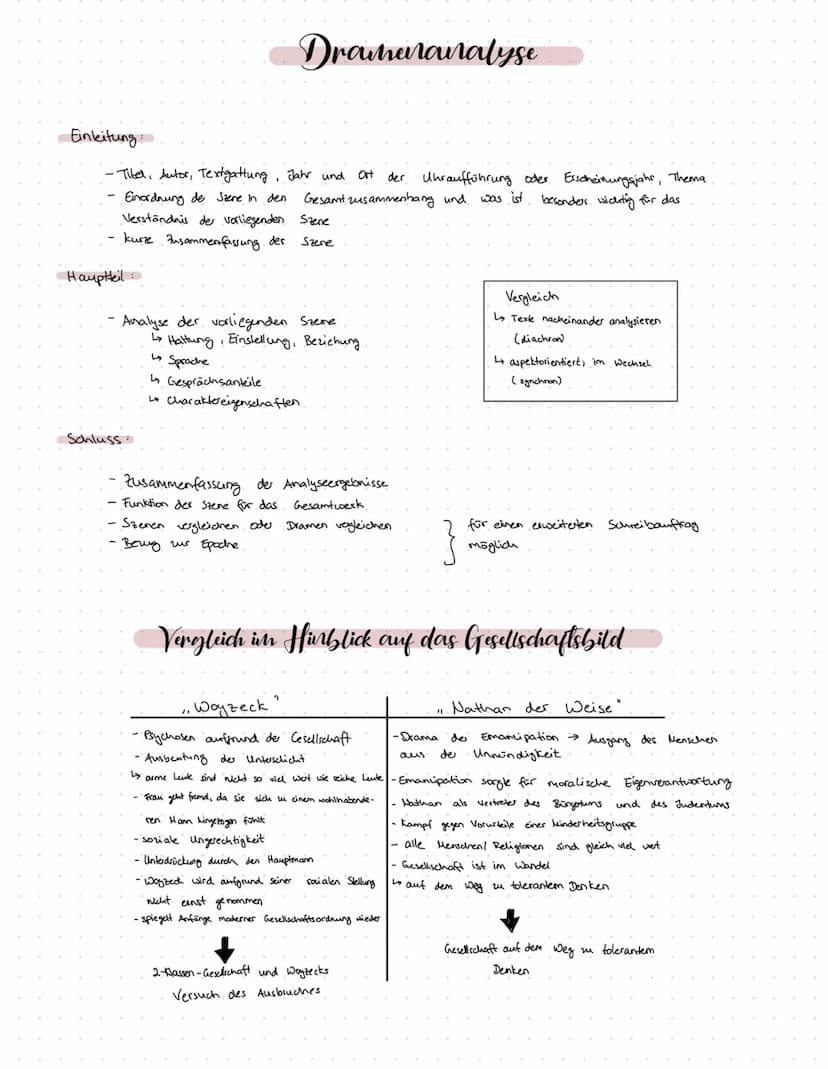 Dramenanalyse
Einleitung:
- Titel, Autor, Textgattung, Jahr und Ort der Uhraufführung oder Erscheinungsjahr, Thema
- Einordnung der Szene in den Gesamtzusammenhang und was ist besonders wichtig für das
Verständnis der vorliegenden Szene
- kurze Zusammenfassung der Szene
Hauptteil:
- Analyse der vorliegenden Szene
↳ Haltung, Einstellung, Beziehung
↳ Sprache
↳ Gesprächsanteile
↳ Charaktereigenschaften
Vergleich
↳ Texte nacheinander analysieren
(diachron)
↳ aspektorientiert, im Wechsel
(synchron)
Schluss:
- Zusammenfassung der Analyseergebnisse
- Funktion der Szene für das Gesamtwerk
- Szenen vergleichen oder Dramen vergleichen
- Bezug zur Epoche
} für einen erweiterten Schreibauftrag
möglich
Vergleich im Hinblick auf das Gesellschaftsbild
„Woyzeck"
- Psychosen aufgrund der Gesellschaft
- Ausbeutung der Unterschicht
↳ arme Leute sind nicht so viel wert wie reiche Leute
- Frau geht fremd, da sie sich zu einem wohlhabende-
ren Mann hingezogen fühlt
- soziale Ungerechtigkeit
- Unterdrückung durch den Hauptmann
- Woyzeck wird aufgrund seiner sozialen Stellung
nicht ernst genommen
- spiegelt Anfänge moderner Gesellschaftsordnung wieder
2-Klassen-Gesellschaft und Woyzecks
Versuch des Ausbruches
„Nathan der Weise"
- Drama der Emanzipation → Ausgang des Menschen
aus der Unmündigkeit
- Emanzipation sorgte für moralische Eigenverantwortung
- Nathan als Vertreter des Bürgertums und des Judentums
- Kampf gegen Vorurteile einer Minderheitsgruppe
- alle Menschen/Religionen sind gleich viel wert
- Gesellschaft ist im Wandel
↳ auf dem Weg zu tolerantem Denken
Gesellschaft auf dem Weg zu tolerantem
Denken